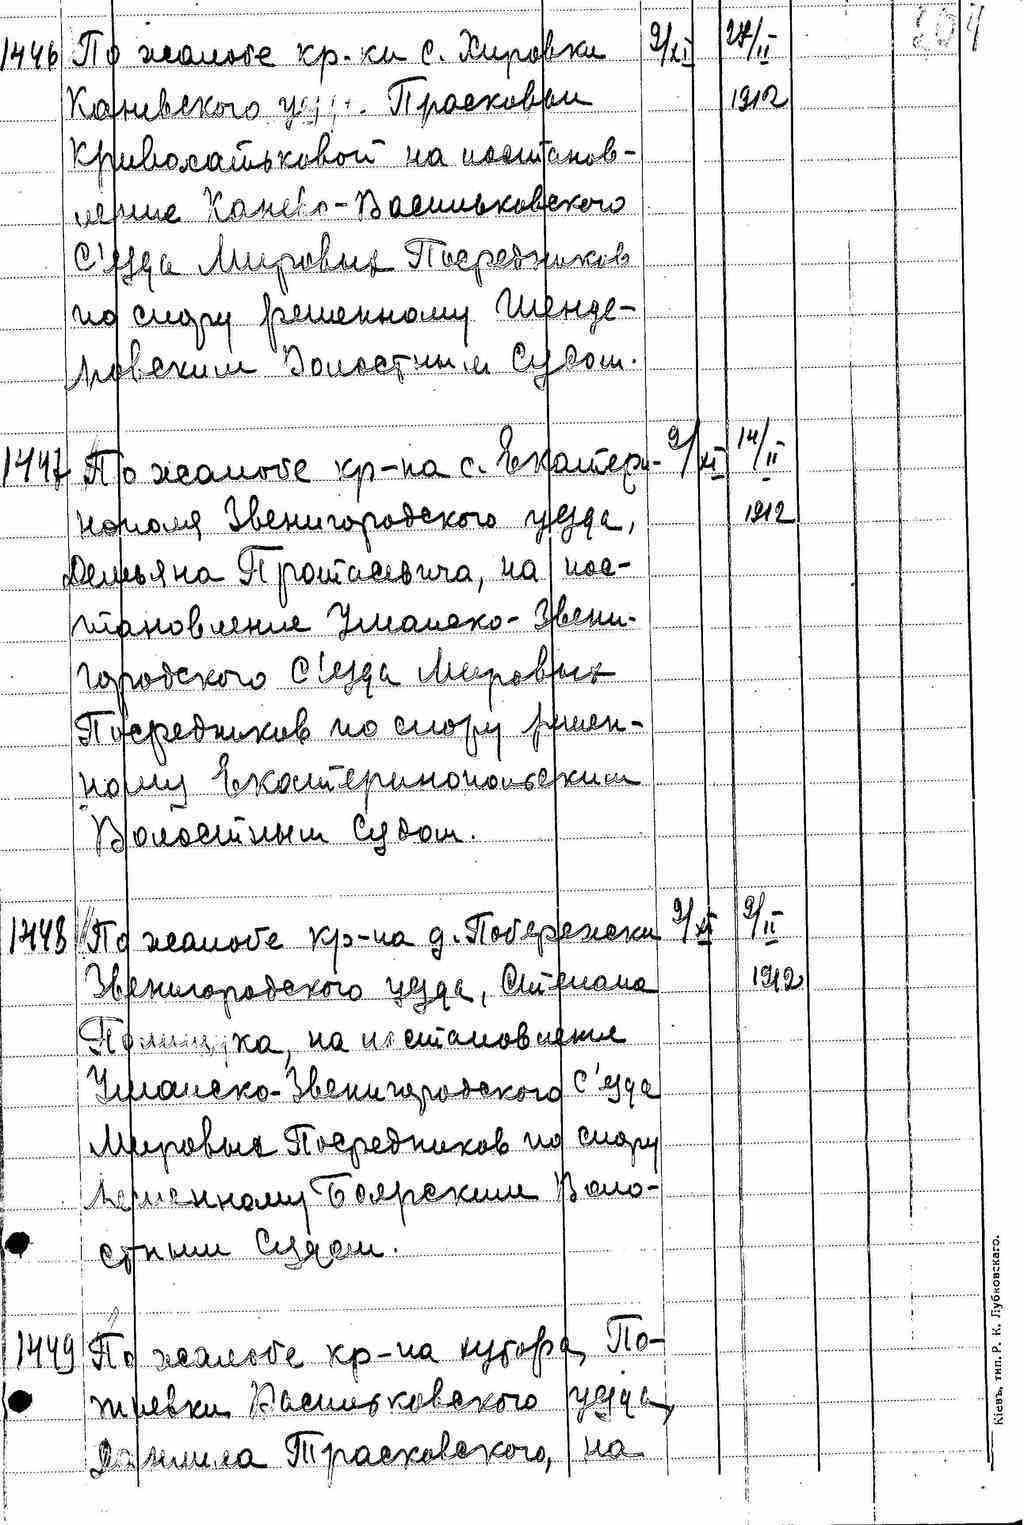 204
1446 По жалобе кр-ки с. Хировки 9/XI 27/II
Каневского уезд. Прасковьи 1912
Кривохатьковой на постанов-
ление Канево-Васильковского
С'езда Мировых Посредников
по спору решенному Шенде-
ровским Волостным Судом.
1447 По жалобе кр-на с. Екатери- 9/XI 14/II
нополя Звенигородского уезда, 1912
Демьяна Протасевича, на пос-
тановление Уманско-Звени-
городского С'езда Мировых
Посредников по спору решен-
ному Екатеринопольским
Волостным Судом.
1448 По жалобе кр-на д. Побережки 9/XI 9/II
Звенигородского уезда, Степана 1912
Полищука, на постановление
Уманско-Звенигородского С'езда
Мировых Посредников по спору
решенному Боярским Воло-
стным Судом.
1449 По жалобе кр-на хутора По-
Васильковского уезда,
Даниила Трасковского, на
Кіевъ, тип. Р. К. Лубковскаго.